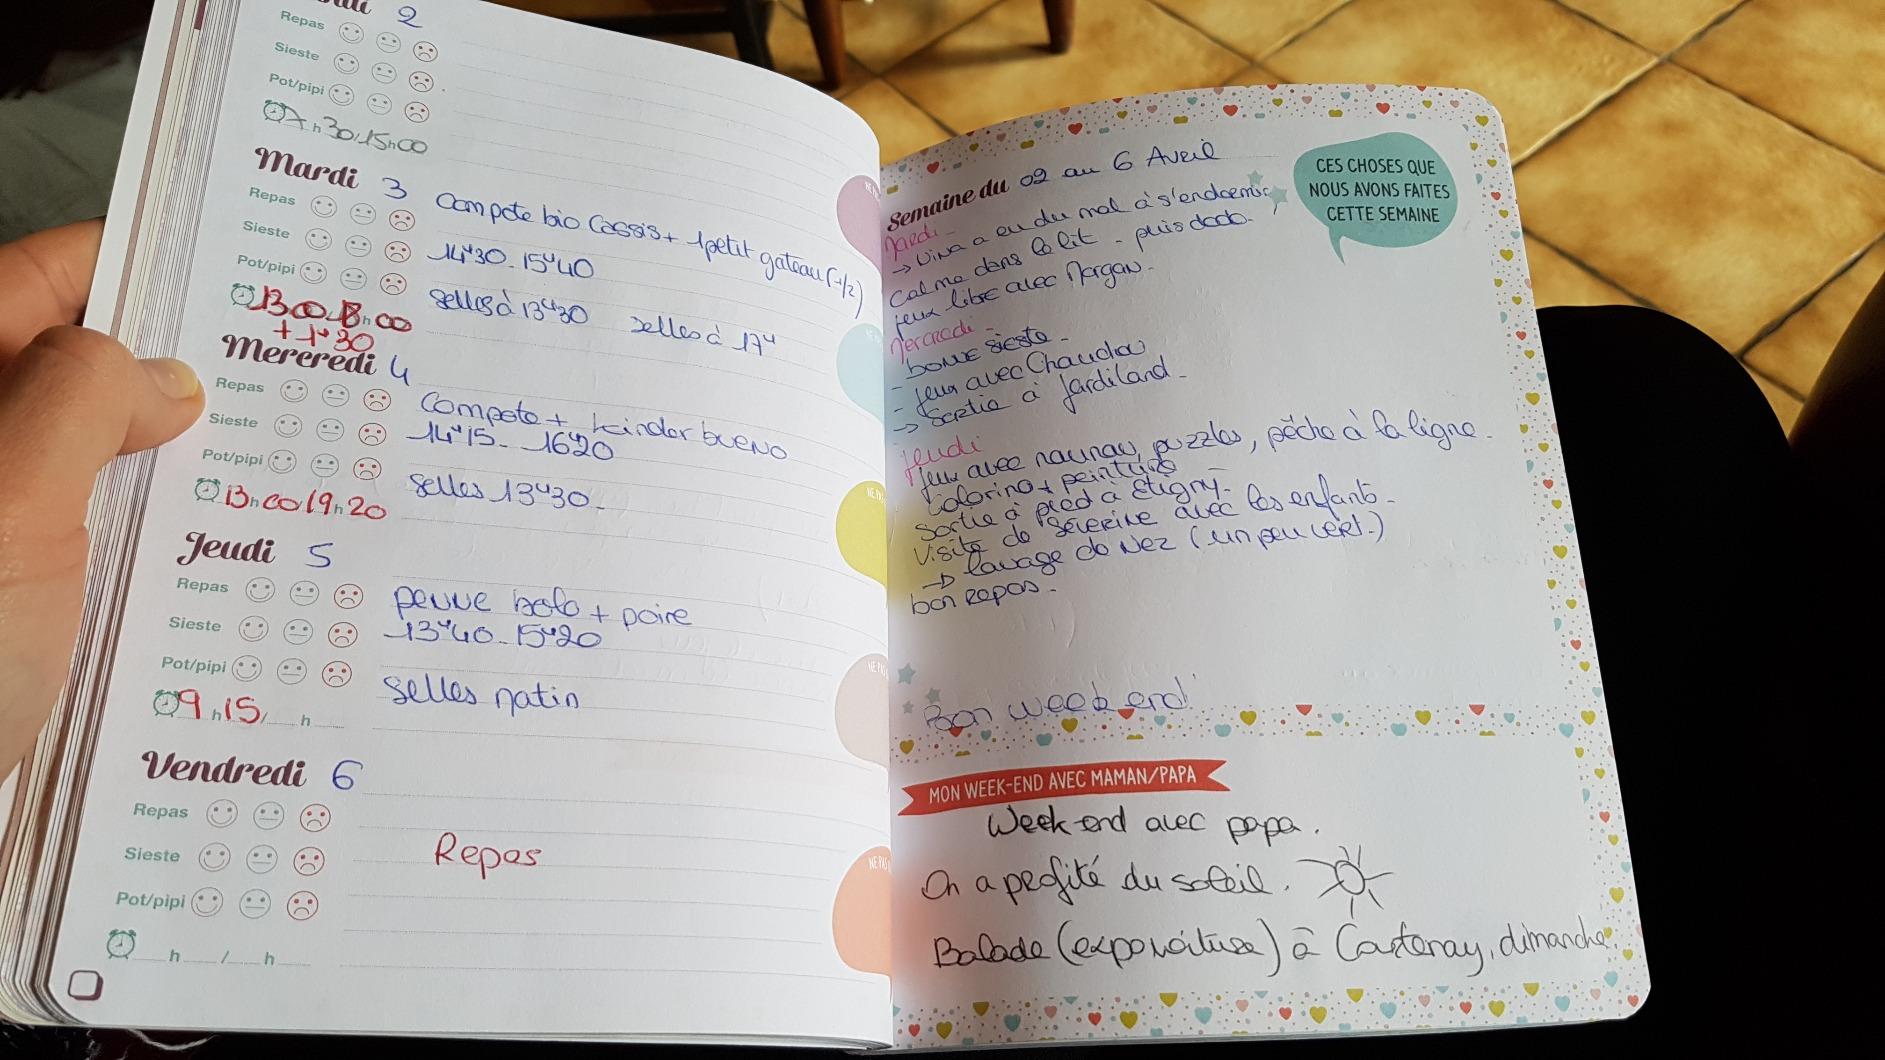 2
Repas
Sieste
Pot/pipi
7h30/15h00
Mardi 3
Repas
Compote bio Cassis + 1 petit gateau (+/2)
Sieste
14h30 - 15h40
Pot/pipi
selles à 13h30 selles à 17h
13h00/18h00
+ 1h30
Mercredi 4
Repas
Compote + kinder bueno
Sieste
14h15 - 16h20
Pot/pipi
selles 13h30.
13h00/19h20
Jeudi 5
Repas
penne bolo + poire
Sieste
13h40 - 15h20
Pot/pipi
selles matin
9h15/ h
Vendredi 6
Repas
Sieste
Repas
Pot/pipi
h / h
Semaine du 02 au 6 Avril
CES CHOSES QUE
NOUS AVONS FAITES
CETTE SEMAINE
Mardi -
→ a eu du mal à s'endormir,
calme dans le lit - puis dodo.
jeux libre avec Morgan.
Mercredi -
- bonne sieste.
- jeux avec
→ sortie à Jardiland.
jeudi
jeux avec nounou, puzzles, pêche à la ligne.
coloring + peinture
Sortie à pied à Etigny.
Visite de Séverine avec les enfants.
→ lavage de nez (un peu vert.)
bon repas.
Bon week end!
MON WEEK-END AVEC MAMAN/PAPA
Week-end avec papa.
On a profité du soleil.
Balade (expo voiture) à Courtenay, dimanche.